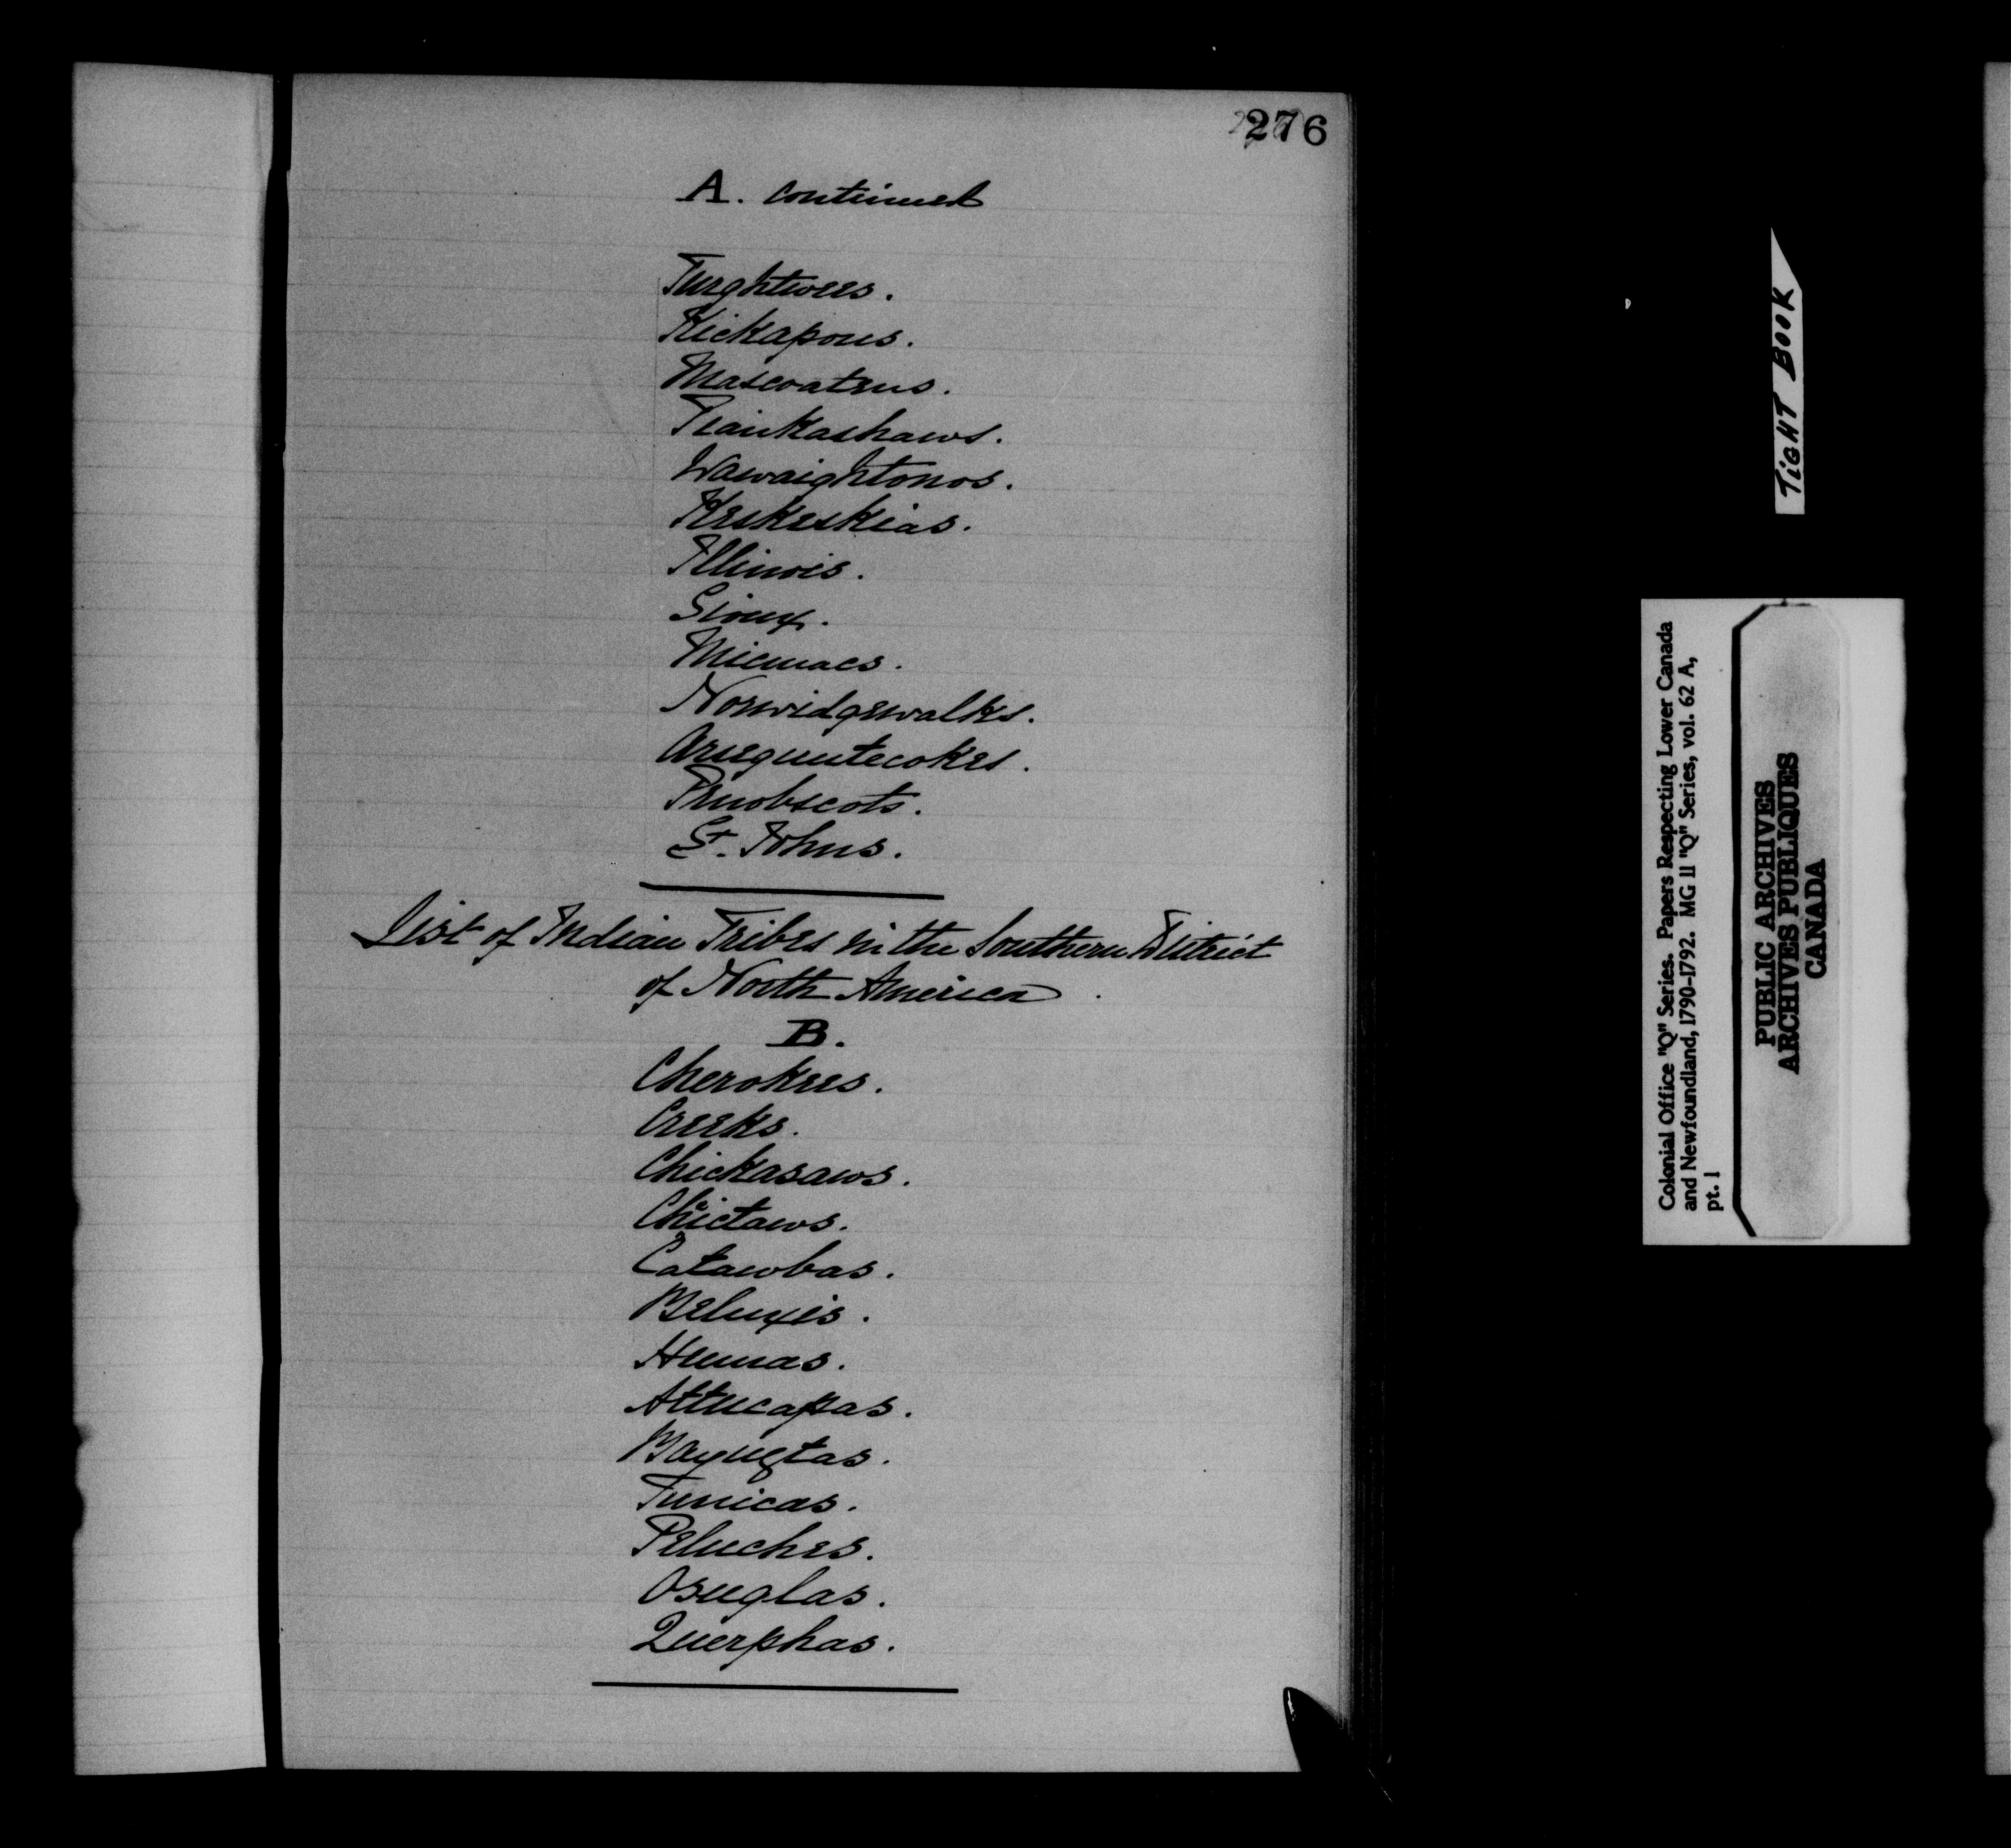 276
A. continued
Turghtwees.
Kickapous.
Mascoatens.
Piankashaws.
Wawaightonos.
Keskeskias.
Illinois.
Sioux.
Micmacs.
Norwidgewalks.
Arseguntecokes.
Penobscots.
St. Johns.
List of Indian Tribes in the Southern District
of North America.
B.
Cherokees.
Creeks.
Chickasaws.
Chictaws.
Catawbas.
Beluxis.
Humas.
Attucapas.
Bayugtas.
Tunicas.
Peluches.
Osuglas.
Querphas.
TIGHT BOOK
Colonial Office "Q" Series. Papers Respecting Lower Canada
and Newfoundland, 1790-1792. MG 11 "Q" Series, vol. 62 A,
pt. 1
PUBLIC ARCHIVES
ARCHIVES PUBLIQUES
CANADA